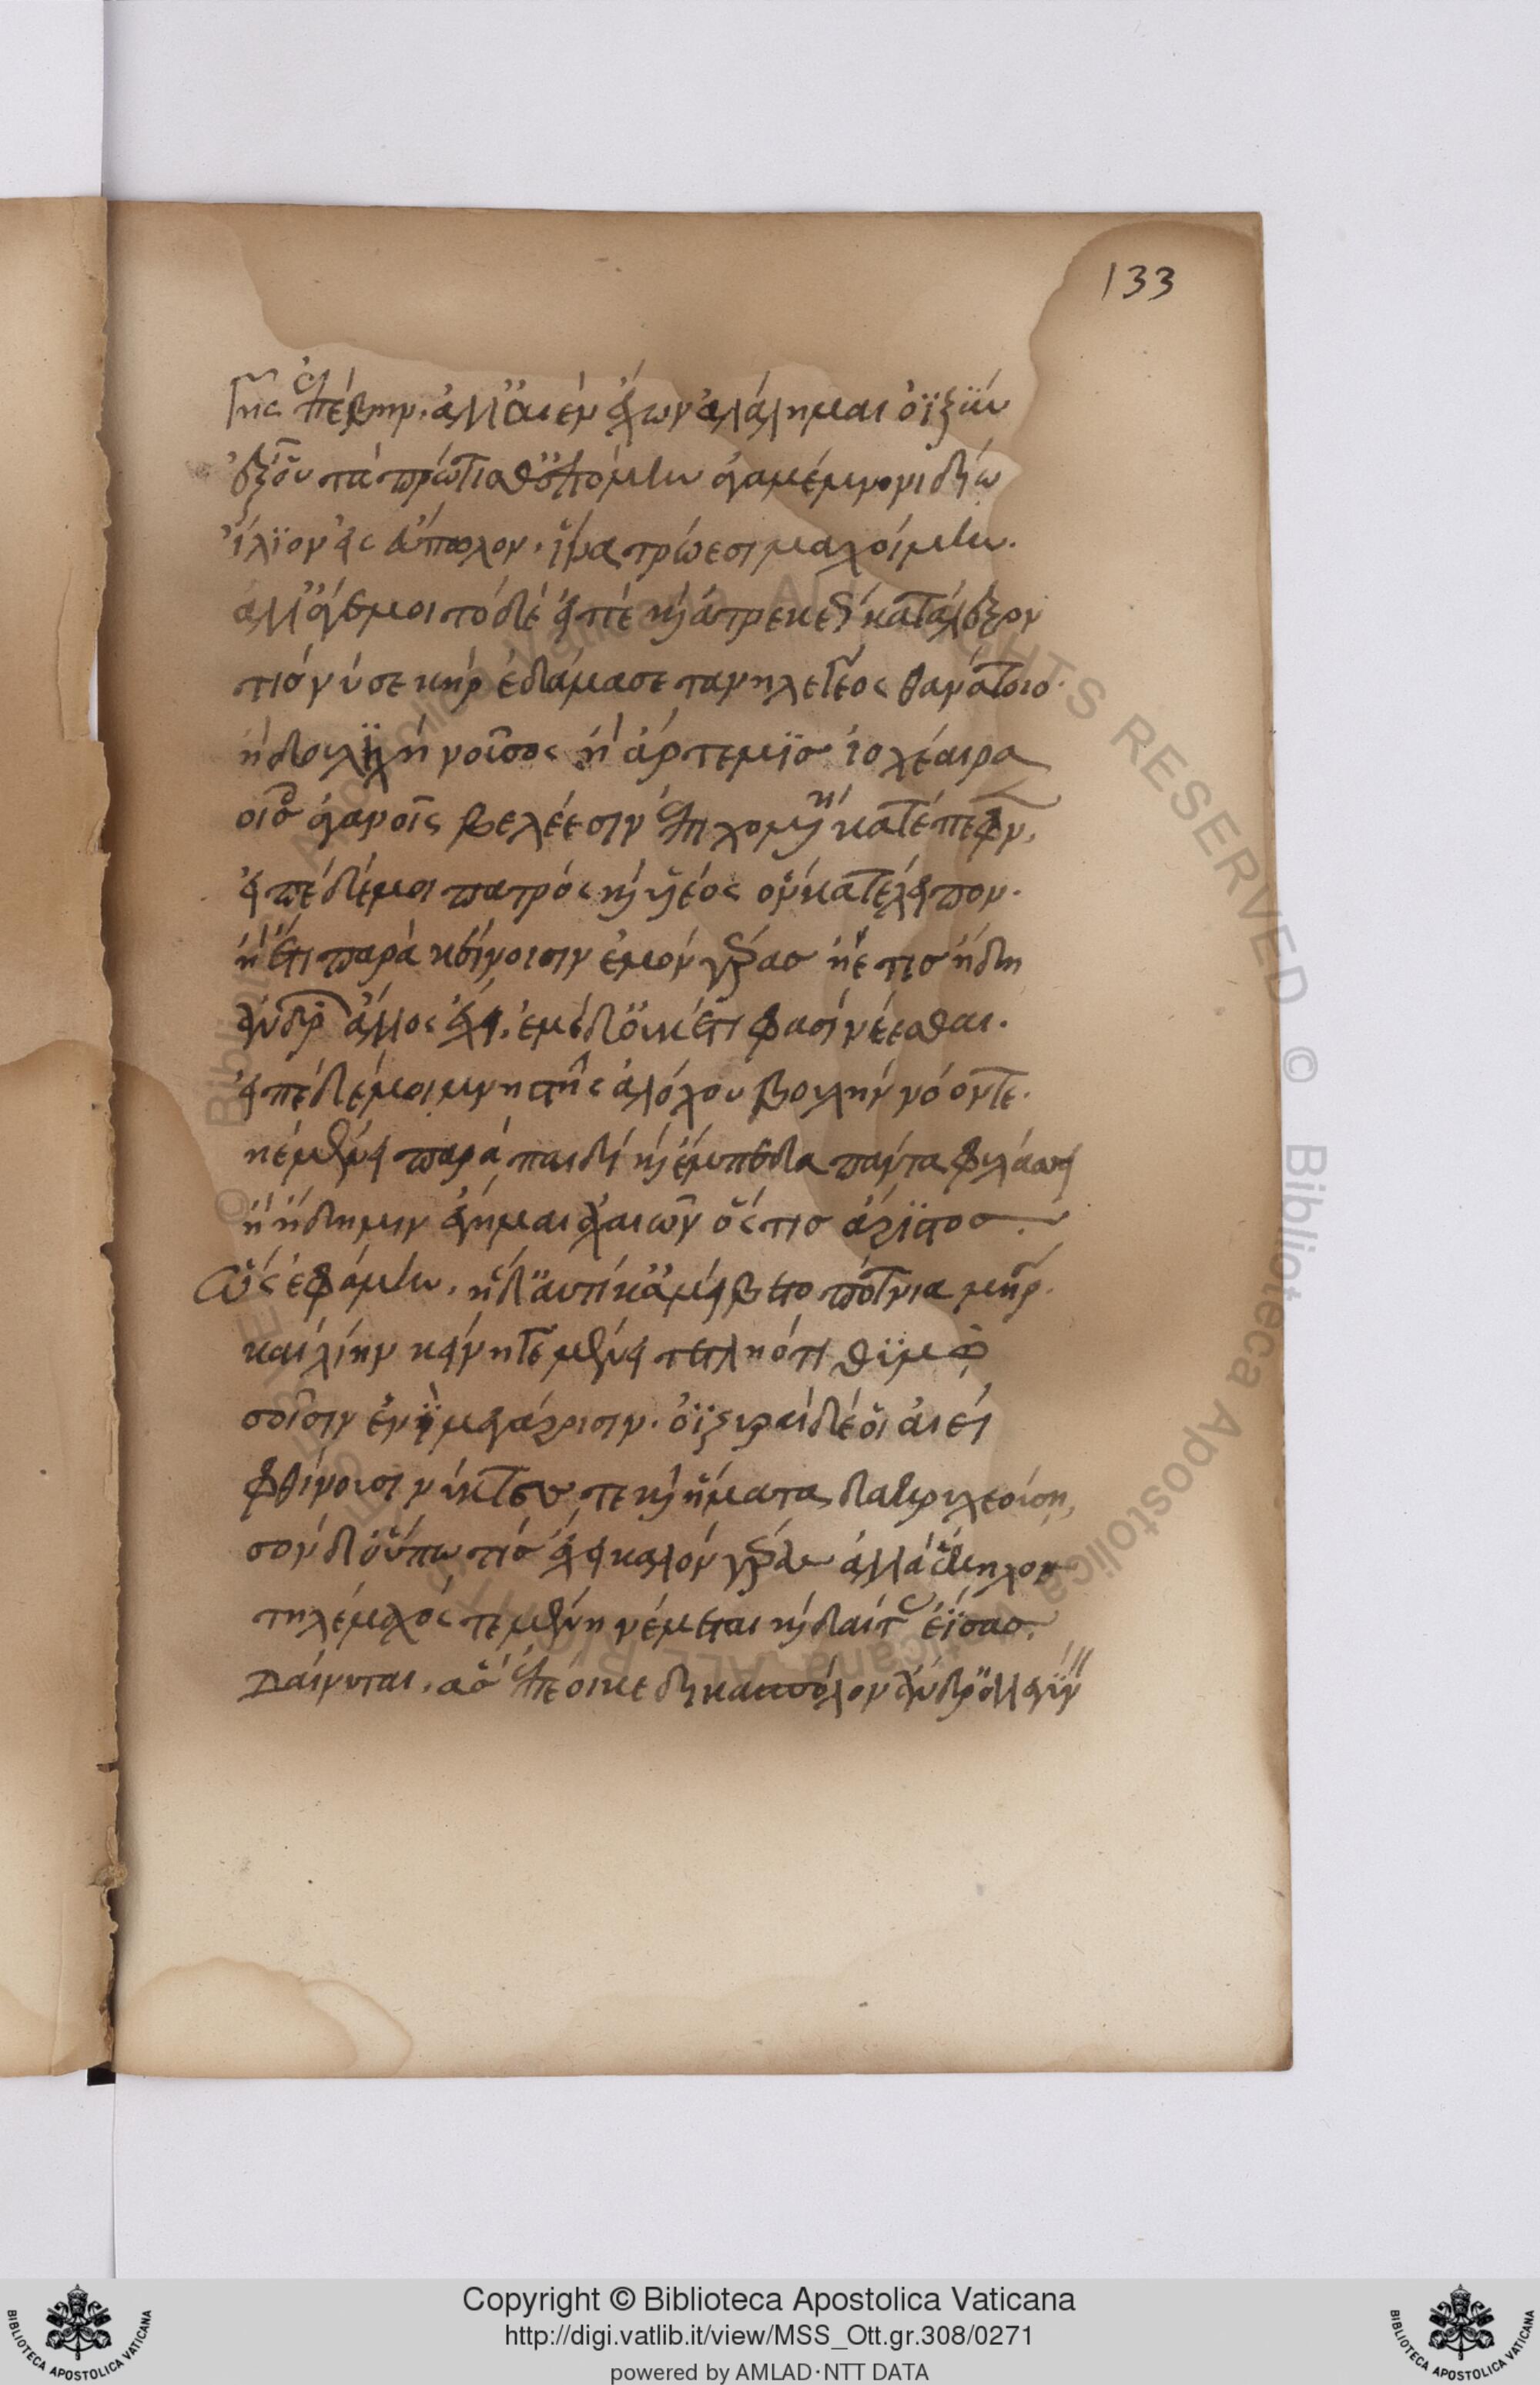 133
γῆς ἐπέβην. ἀλλ' αἰὲν ἔχων ἀλάλημαι ὀϊζὺν
ἐξ οὗ τὰ πρώτισθ' ἑπόμην ἀγαμέμνονι δίῳ
ἴλιον εἰς εὔπωλον. ἵνα τρώεσι μαχοίμην.
ἀλλ' ἄγε μοι τόδε εἰπὲ καὶ ἀτρεκέως κατάλεξον
τίς νύ σε κὴρ ἐδάμασε τανηλεγέος θανάτοιο.
ἢ δολιχὴ νοῦσος ἢ ἄρτεμις ἰοχέαιρα
οἷς ἀγανοῖς βελέεσσιν ἐποιχομένη κατέπεφνεν.
εἰπὲ δέ μοι πατρός καὶ υἱέος ὃν κατέλειπον.
ἢ ἔτι παρὰ κείνοισιν ἐμὸν γέρας ἠέ τις ἤδη
ἀνδρῶν ἄλλος ἔχει. ἐμὲ δ' οὐκέτι φασὶ νέεσθαι.
εἰπὲ δέ μοι μνηστῆς ἀλόχου βουλὴν νόον τε.
ἠὲ μένει παρὰ παιδὶ καὶ ἔμπεδα πάντα φυλάσσει
ἢ ἤδη μιν ἔγημεν ἀχαιῶν ὅς τις ἄριστος.
ὣς ἐφάμην. ἡ δ' αὐτίκ' ἀμείβετο πότνια μήτηρ.
καὶ λίην κείνη γε μένει τετληότι θυμῷ
σοῖσιν ἐνὶ μεγάροισιν. ὀϊζυραὶ δέ οἱ αἰεὶ
φθίνουσι νύκτες τε καὶ ἤματα δακρυχεούσῃ.
σὸν δ' οὔπω τις ἔχει καλὸν γέρας ἀλλὰ ἕκηλος
τηλέμαχος τεμένη νέμεται καὶ δαῖτας ἐΐσας.
δαίνυται. ἃς ἐπέοικε δικασπόλον ἄνδρ' ἀλεγύνειν
Copyright © Biblioteca Apostolica Vaticana
http://digi.vatlib.it/view/MSS_Ott.gr.308/0271
powered by AMLAD·NTT DATA
BIBLIOTECA APOSTOLICA VATICANA
BIBLIOTECA APOSTOLICA VATICANA